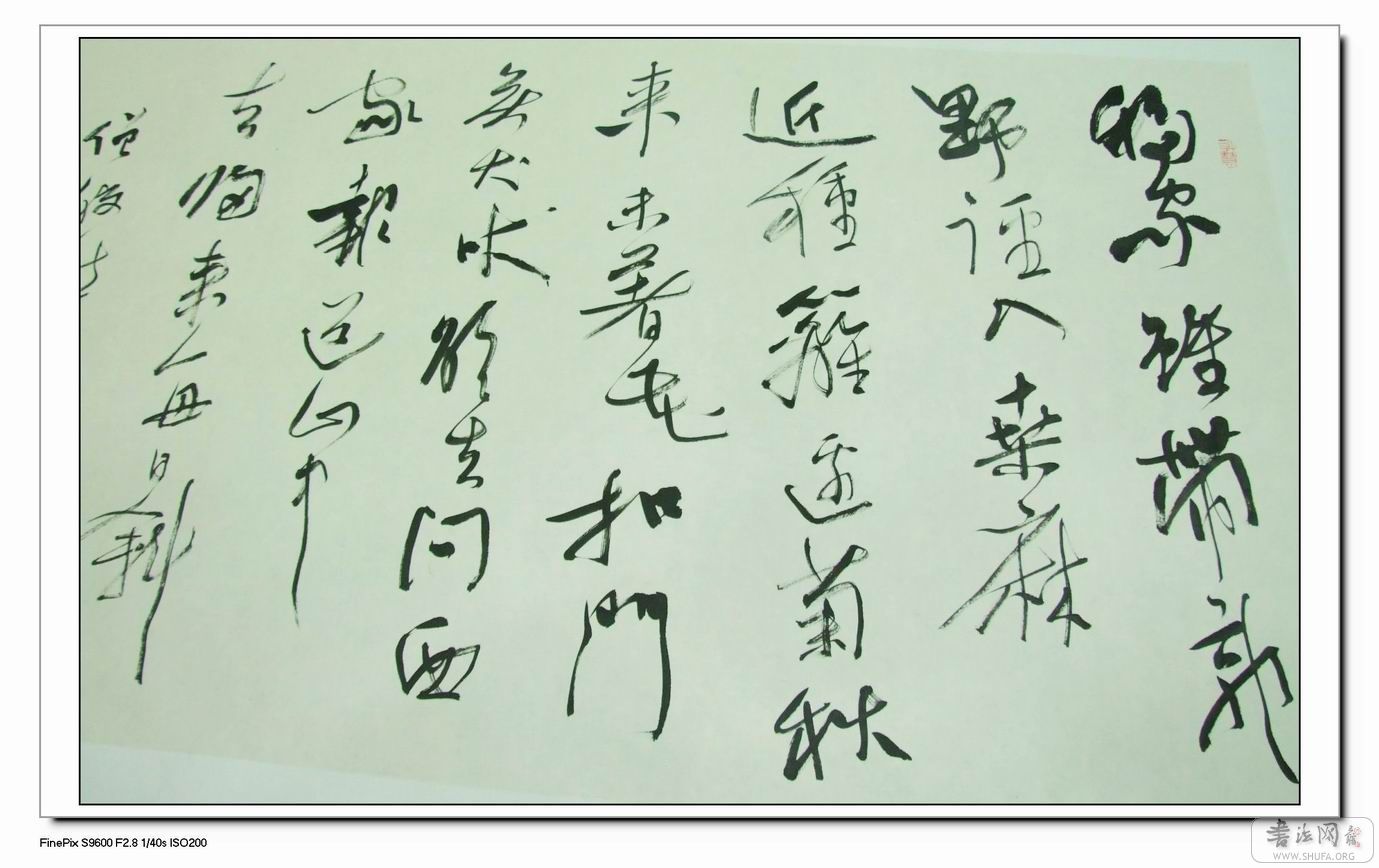 移家雖帶郭
野徑入桑麻
近種籬邊菊秋
来未著花扣門
無犬吠欲去问西
家報道山中
去歸来每日斜
僧
FinePix S9600 F2.8 1/40s ISO200
書法网
WWW.SHUFA.ORG